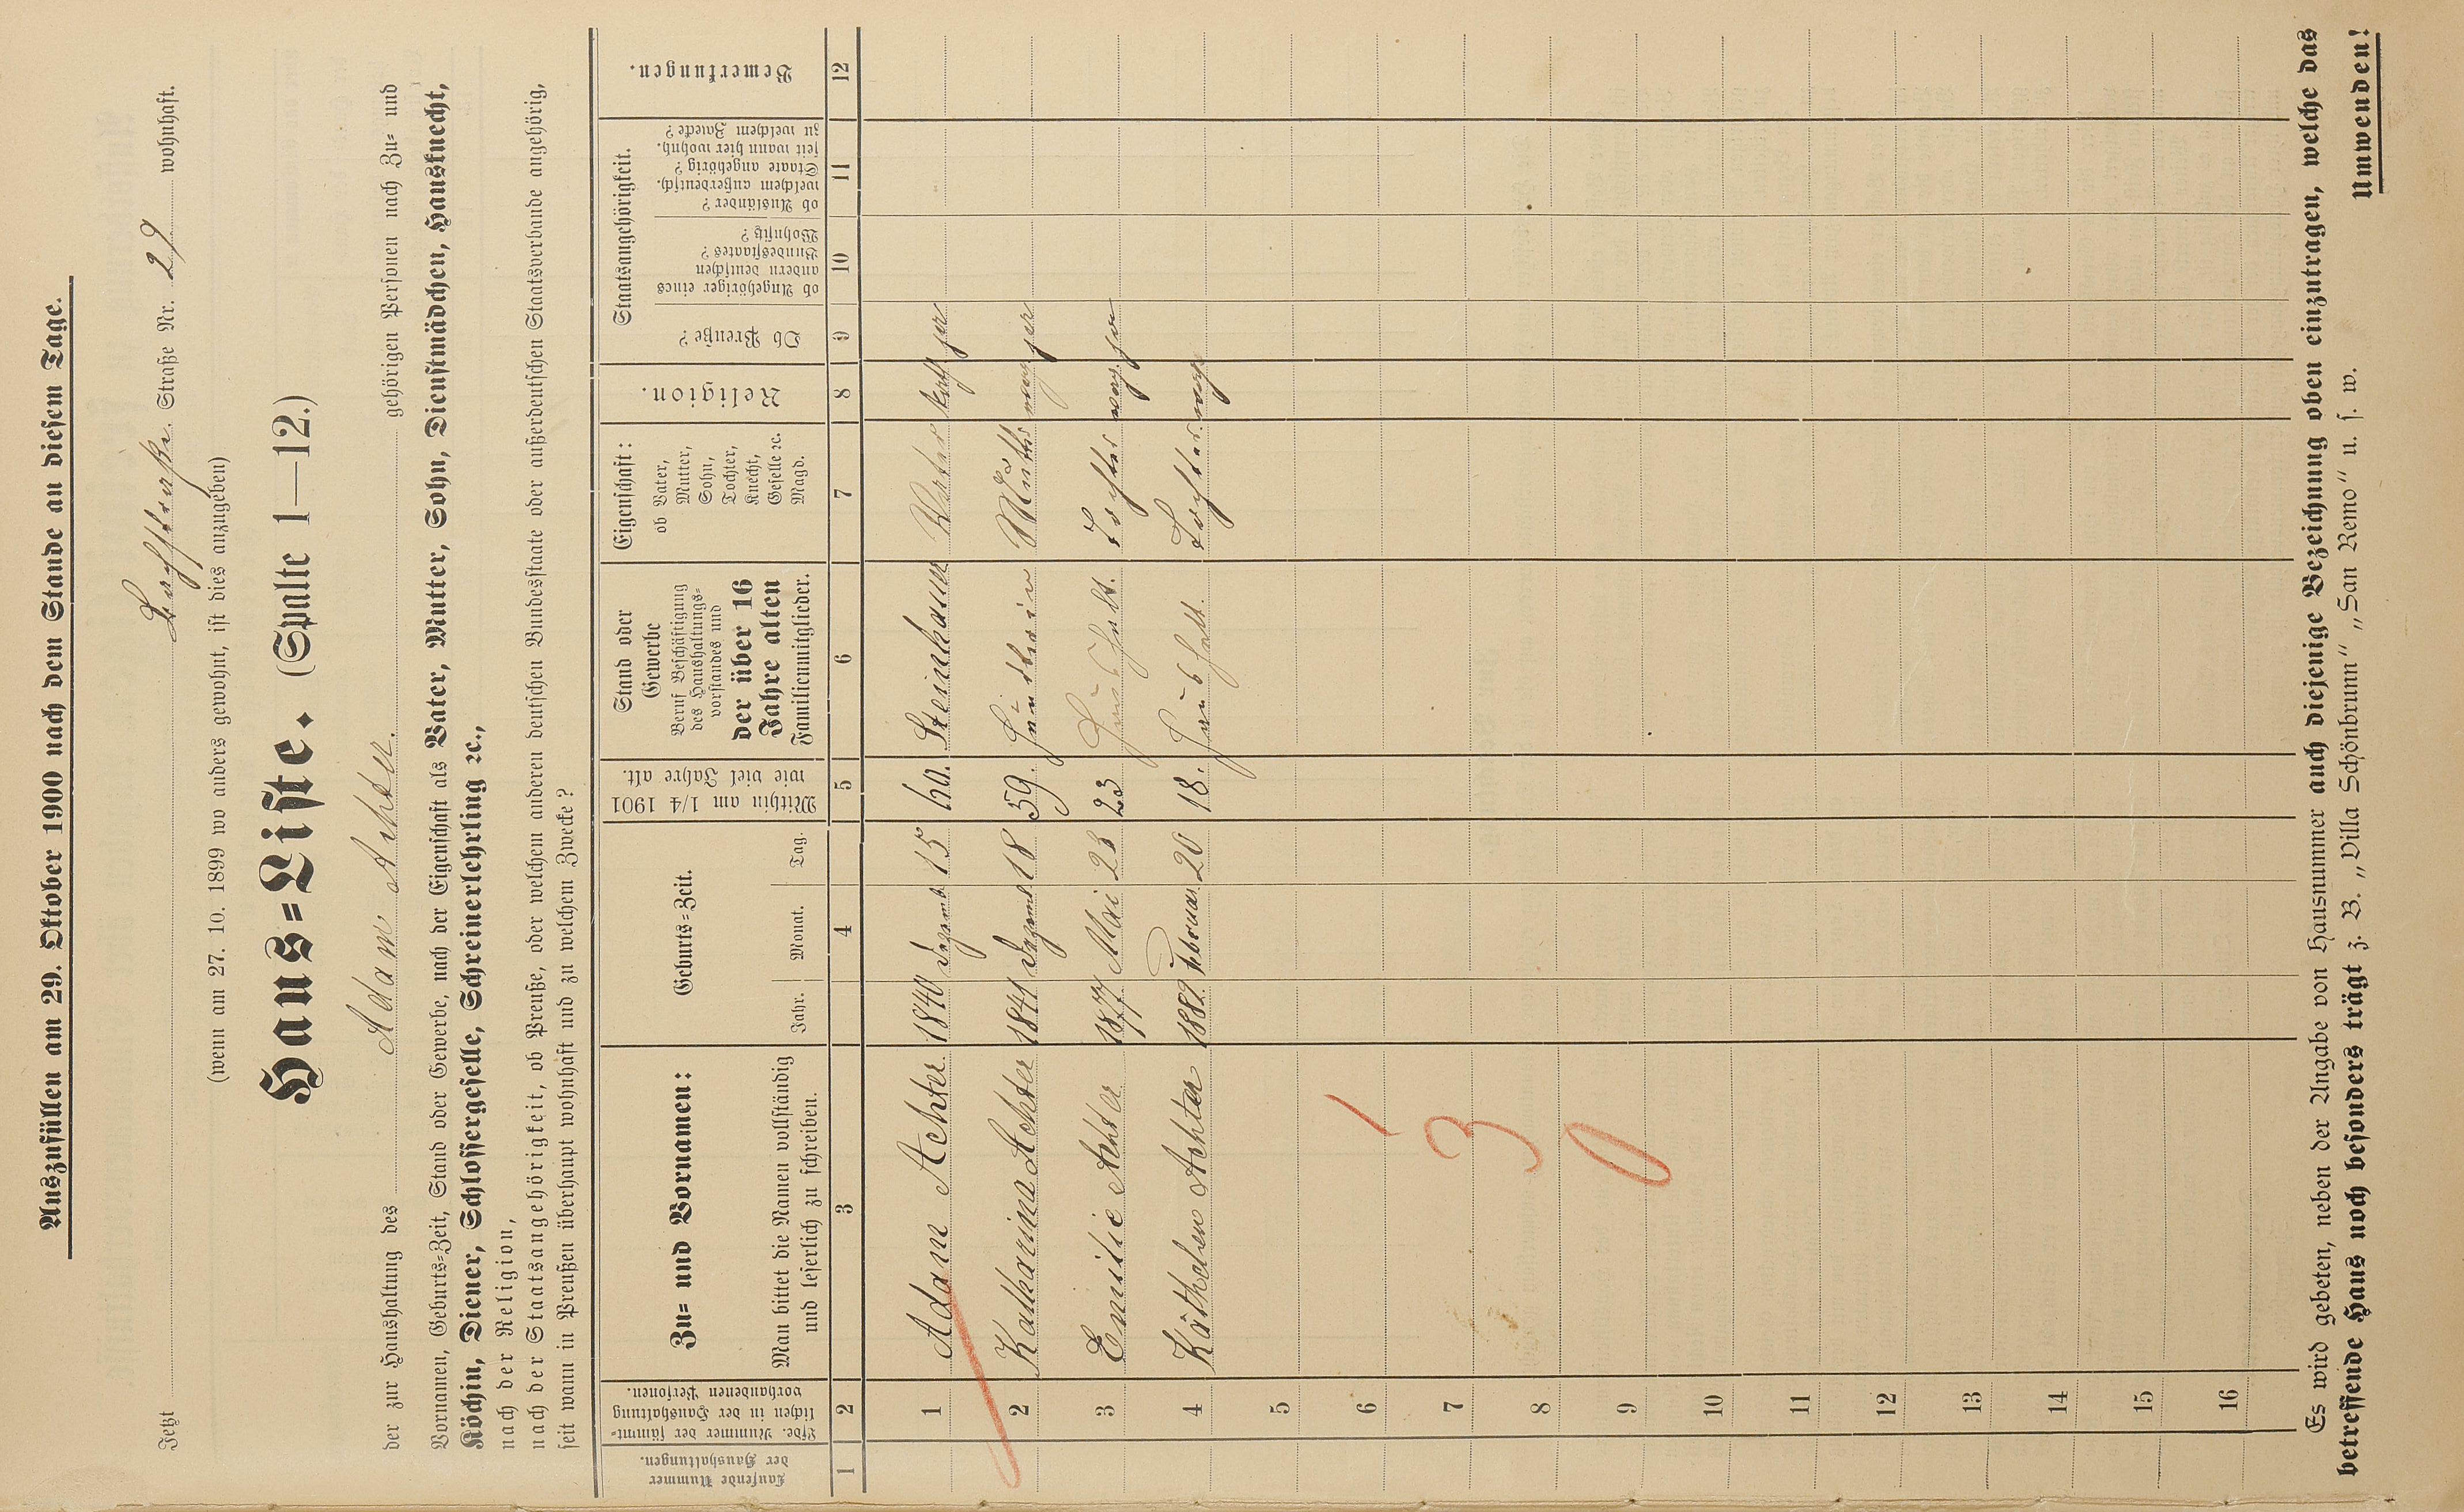 Auszufüllen am 29. Oktober 1900 nach dem Stande an diesem Tage.
Jetzt Bachstraße. Straße Nr. 29 wohnhaft.
(wenn am 27. 10. 1899 wo anders gewohnt, ist dies anzugeben)
Haus=Liste. (Spalte 1—12.)
der zur Haushaltung des Adam Achter. gehörigen Personen nach Zu= und
Vornamen, Geburts=Zeit, Stand oder Gewerbe, nach der Eigenschaft als Vater, Mutter, Sohn, Dienstmädchen, Hausknecht,
Köchin, Diener, Schlossergeselle, Schreinerlehrling ꝛc.,
nach der Religion,
nach der Staatsangehörigkeit, ob Preuße, oder welchem anderen deutschen Bundesstaate oder außerdeutschen Staatsverbande angehörig,
seit wann in Preußen überhaupt wohnhaft und zu welchem Zwecke?
Laufende Nummer der Haushaltungen.
Lfde. Nummer der sämmt=lichen in der Haushaltung vorhandenen Personen.
Zu= und Vornamen:
Man bittet die Namen vollständig
und leserlich zu schreiben.
Geburts=Zeit.
Jahr. Monat. Tag.
Mithin am 1/4 1901
wie viel Jahre alt.
Stand oder
Gewerbe
Beruf Beschäftigung
des Haushaltungs=
vorstandes und
der über 16
Jahre alten
Familienmitglieder.
Eigenschaft:
ob Vater,
Mutter,
Sohn,
Tochter,
Knecht,
Geselle ꝛc.
Magd.
Religion.
Staatsangehörigkeit.
Ob Preuße?
ob Angehöriger eines
andern deutschen
Bundesstaates?
Wohnsitz?
ob Ausländer?
welchem außerdeutsch.
Staate angehörig?
seit wann hier wohnh.
zu welchem Zwecke?
Bemerkungen.
1 2 3 4 5 6 7 8 9 10 11 12
1 Adam Achter 1840 Dezemb. 15 60. Steinhauer Vater kath ja
2 Katharina Achter 1841 Dezemb 18 59. Händlerin Mutter evag ja
3 Emilie Achter 1877 Mai 23 23 Haushalt. Tochter evag. ja
4 Käthchen Achter 1882 Februar 20 18. Haushalt. Tochter evag
5
6
7
8
9
10
11
12
13
14
15
16
1
3
0
Es wird gebeten, neben der Angabe von Hausnummer auch diejenige Bezeichnung oben einzutragen, welche das
betreffende Haus noch besonders trägt z. B. „Villa Schönbrunn“ „San Remo“ u. s. w.
Umwenden!